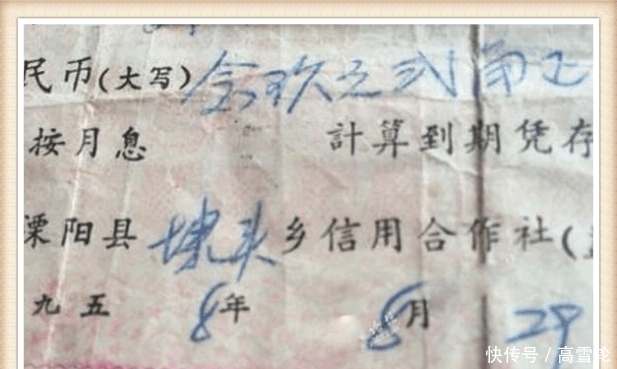 民币(大写) 玖元弍角正
按月息 計算到期凭存
溧阳县埭头乡信用合作社(
九五8年8月29
快传号/高雪轮